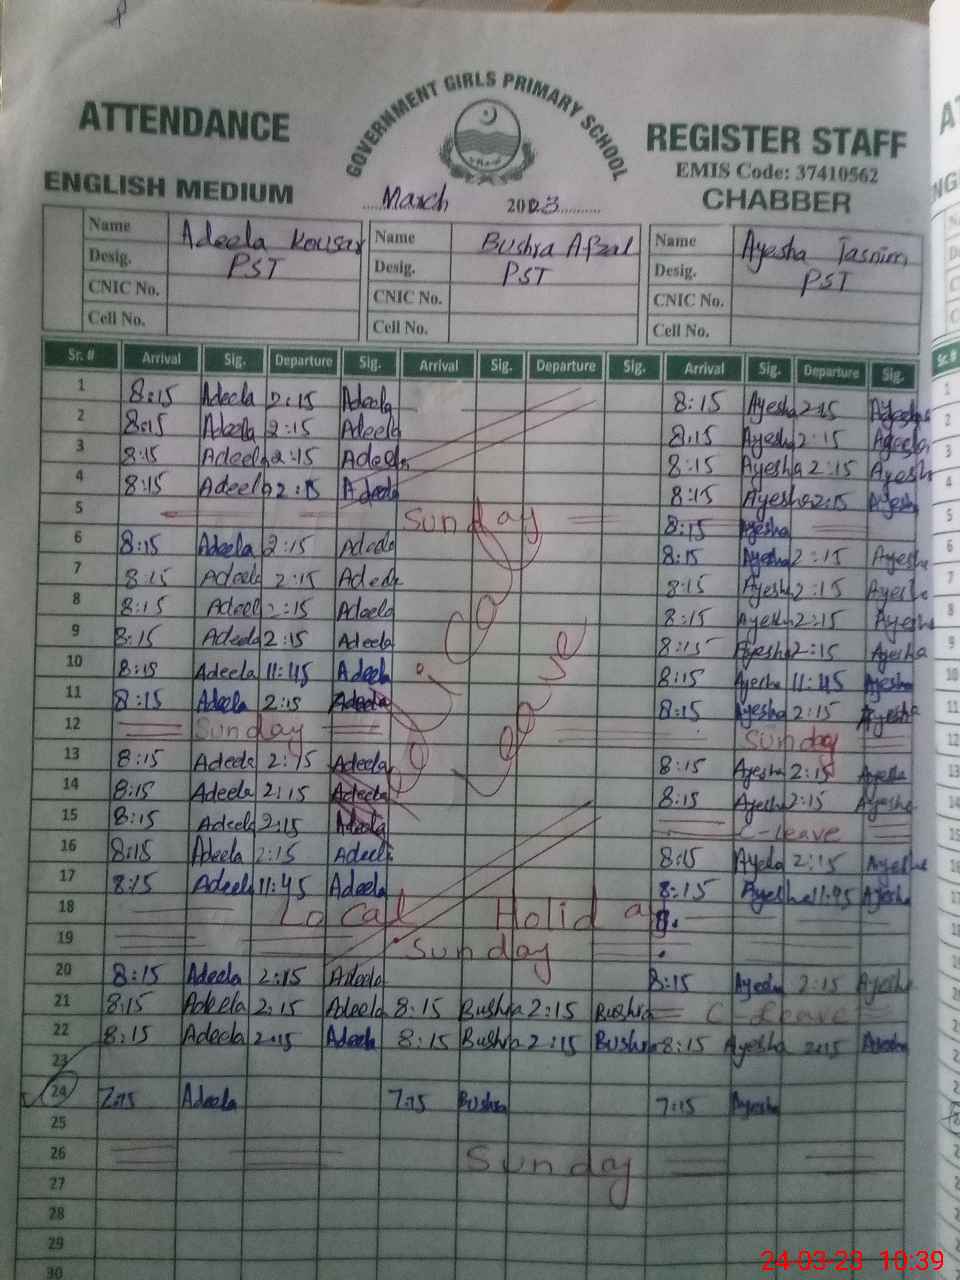 GOVERNMENT GIRLS PRIMARY SCHOOL
ATTENDANCE REGISTER STAFF
EMIS Code: 37410562
ENGLISH MEDIUM March 2023 CHABBER
Name Adeela Kousar Name Bushra Afzal Name Ayesha Tasnim
Desig. PST Desig. PST Desig. PST
CNIC No. CNIC No. CNIC No.
Cell No. Cell No. Cell No.
Sr. # Arrival Sig. Departure Sig. Arrival Sig. Departure Sig. Arrival Sig. Departure Sig.
1 8:15 Adeela 2:15 Adeela 8:15 Ayesha 2:15
2 8:15 Adeela 2:15 Adeela 8:15 Ayesha 2:15
3 8:15 Adeela 2:15 Adeela 8:15 Ayesha 2:15 Ayesha
4 8:15 Adeela 2:15 Adeela 8:15 Ayesha 2:15 Ayesha
5 Sunday 8:15 Ayesha
6 8:15 Adeela 2:15 Adeela 8:15 Ayesha 2:15 Ayesha
7 8:15 Adeela 2:15 Adeela 8:15 Ayesha 2:15 Ayesha
8 8:15 Adeela 2:15 Adeela 8:15 Ayesha 2:15 Ayesha
9 8:15 Adeela 2:15 Adeela 8:15 Ayesha 2:15 Ayesha
10 8:15 Adeela 11:45 Adeela 8:15 Ayesha 11:45 Ayesha
11 8:15 Adeela 2:15 Adeela 8:15 Ayesha 2:15 Ayesha
Medical Leave
12 Sunday Sunday
13 8:15 Adeela 2:15 Adeela 8:15 Ayesha 2:15 Ayesha
14 8:15 Adeela 2:15 Adeela 8:15 Ayesha 2:15 Ayesha
15 8:15 Adeela 2:15 Adeela C-Leave
16 8:15 Adeela 2:15 Adeela 8:15 Ayesha 2:15 Ayesha
17 8:15 Adeela 11:45 Adeela 8:15 Ayesha 11:45 Ayesha
18 Local Holiday.
19 Sunday
20 8:15 Adeela 2:15 Adeela 8:15 Ayesha 2:15 Ayesha
21 8:15 Adeela 2:15 Adeela 8:15 Bushra 2:15 Bushra C-Leave
22 8:15 Adeela 2:15 Adeela 8:15 Bushra 2:15 Bushra 8:15 Ayesha 2:15 Ayesha
23
24 7:15 Adeela 7:15 Bushra 7:15 Ayesha
25
26 Sunday
27
28
29
30
24-03-23 10:39